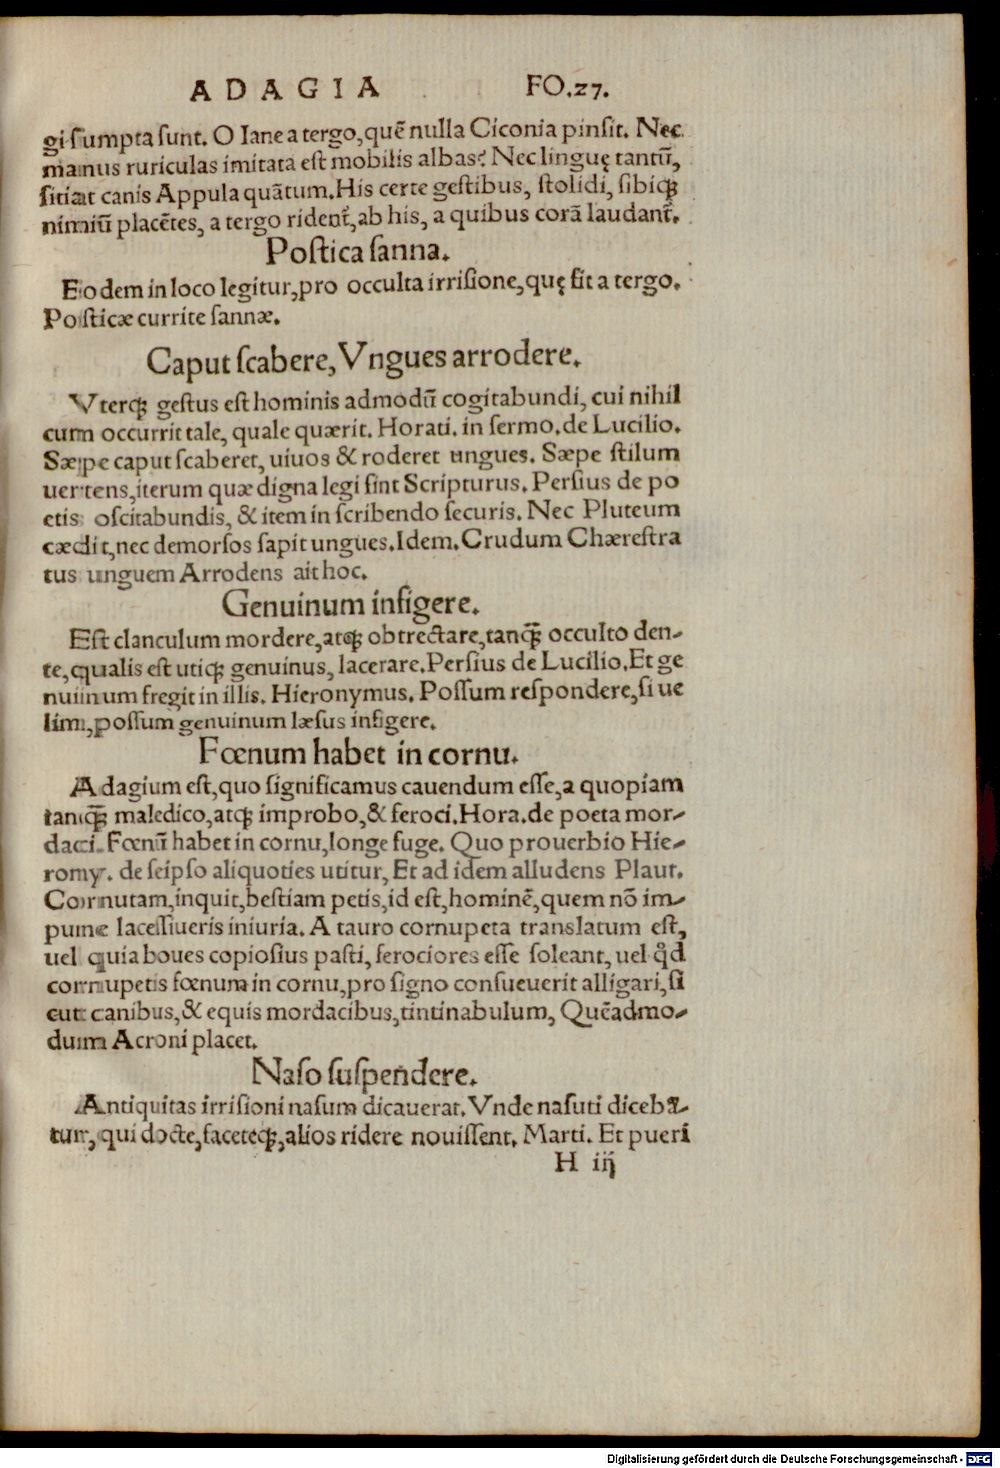 ADAGIA FO.27.
gi sumpta sunt. O Iane a tergo, quẽ nulla Ciconia pinsit. Nec
manus ruriculas imitata est mobilis albas? Nec linguę tantũ,
sitiat canis Appula quãtum. His certe gestibus, stolidi, sibiq;
nimiũ placẽtes, a tergo ridenť, ab his, a quibus corã laudanť.
Postica sanna.
Eodem in loco legitur, pro occulta irrisione, quę fit a tergo.
Posticæ currite sannæ.
Caput scabere, Vngues arrodere.
Vterq; gestus est hominis admodũ cogitabundi, cui nihil
cum occurrit tale, quale quærit. Horati. in sermo. de Lucilio.
Sæpe caput scaberet, uiuos & roderet ungues. Sæpe stilum
uertens, iterum quæ digna legi sint Scripturus. Persius de po
etis oscitabundis, & item in scribendo securis. Nec Pluteum
cædit, nec demorsos sapit ungues. Idem. Crudum Chærestra
tus unguem Arrodens ait hoc.
Genuinum infigere.
Est clanculum mordere, atq; obtrectare, tanq̃ occulto den-
te, qualis est utiq; genuinus, lacerare. Persius de Lucilio. Et ge
nuinum fregit in illis. Hieronymus. Possum respondere, si ue
lim, possum genuinum læsus infigere.
Fœnum habet in cornu.
Adagium est, quo significamus cauendum esse, a quopiam
tanq̃ maledico, atq; improbo, & feroci. Hora. de poeta mor-
daci. Fœnũ habet in cornu, longe fuge. Quo prouerbio Hie-
romy. de seipso aliquoties utitur, Et ad idem alludens Plaut.
Cornutam, inquit, bestiam petis, id est, hominẽ, quem nõ im-
pune lacessiueris iniuria. A tauro cornupeta translatum est,
uel quia boues copiosius pasti, ferociores esse soleant, uel qđ
cornupetis fœnum in cornu, pro signo consueuerit alligari, si
cut canibus, & equis mordacibus, tintinabulum, Quẽadmo-
dum Acroni placet.
Naso suspendere.
Antiquitas irrisioni nasum dicauerat. Vnde nasuti dicebã-
tur, qui docte, faceteq;, alios ridere nouissent. Marti. Et pueri
H iij
Digitalisierung gefördert durch die Deutsche Forschungsgemeinschaft - DFG